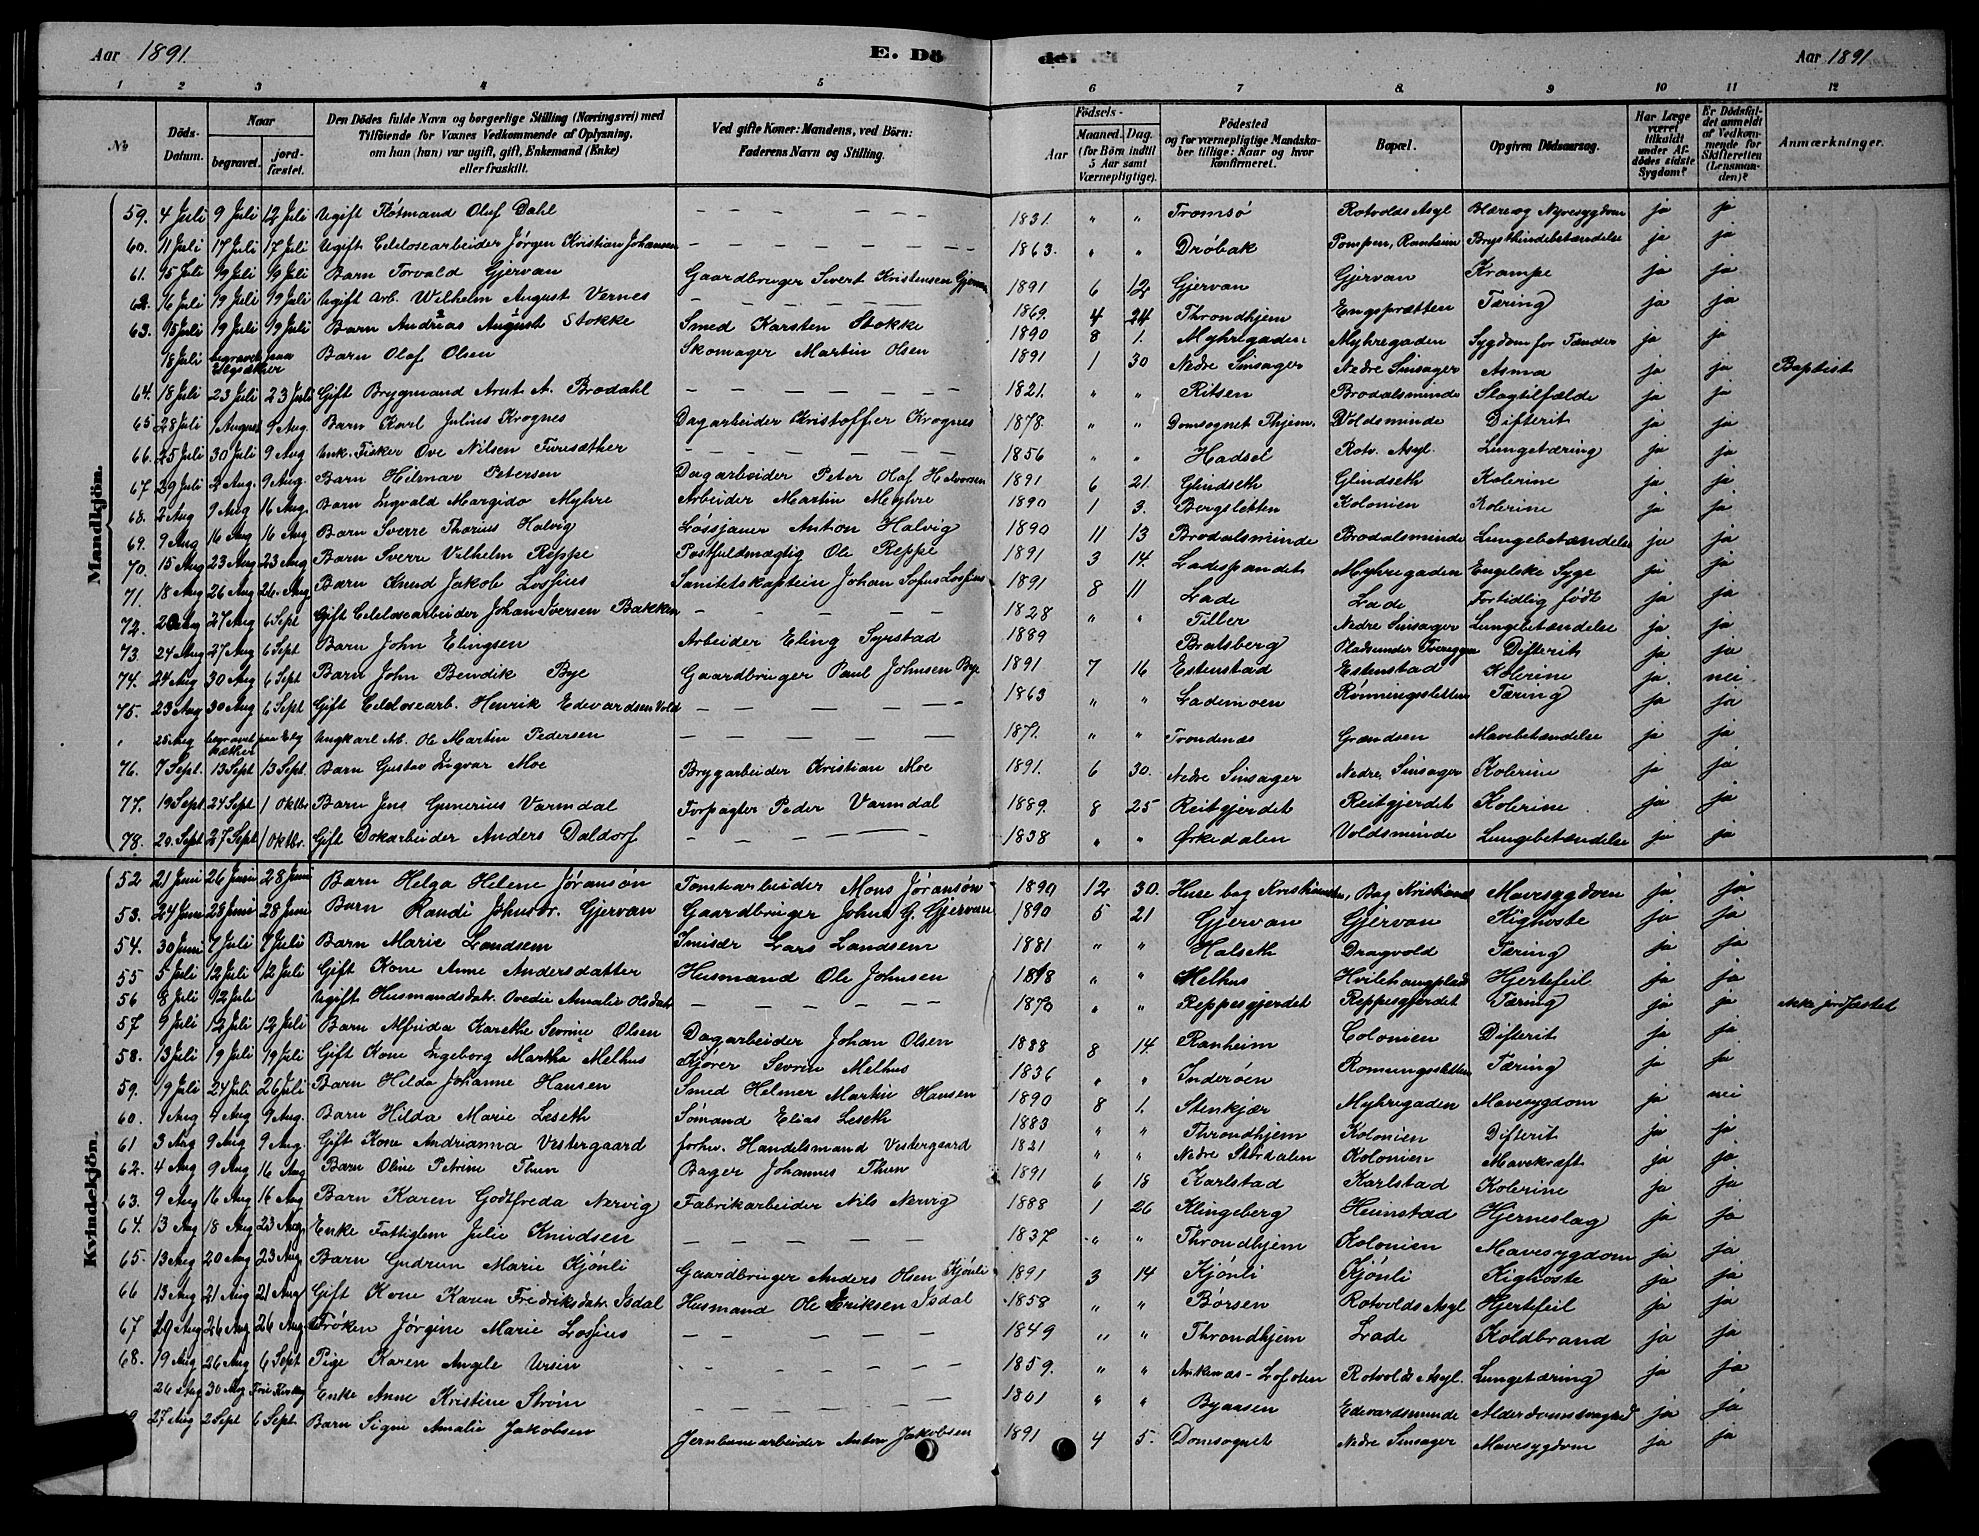 Aar 1891. E. Dö de. Aar 1891
1 2 3 4 5 6 7 8. 9 10 11 12
No Döds-Datum. Naar begravet. jord-fæstet. Den Dödes fulde Navn og borgerlige Stilling (Næringsvei) med Tilföiende for Voxnes Vedkommende af Oplysning, om han (hun) var ugift, gift, Enkemand (Enke) eller fraskilt. Ved gifte Koner: Mandens, ved Börn: Faderens Navn og Stilling. Födsels- Aar Maaned. Dag. (for Börn indtil 5 Aar samt Værnepligtige). Födested og for værnepligtige Mandskaber tillige: Naar og hvor konfirmeret. Bopæl. Opgiven Dödsaarsag. Har Læge været tilkaldt under Afdödes sidste Sygdom? Er Dödsfaldet anmeldt af Vedkommende for Skifteretten (Lensmanden)? Anmærkninger.
Mandkjön.
59. 4 Juli 9 Juli 12 Juli Ugift Flötmand Oluf Dahl — — — 1831. " " Tromsö Rotvolds Asyl Hjerte og Nyresygdom ja ja
60. 11 Juli 17 Juli 17 Juli Ugift Celelosearbeider Jörgen Kristian Johansen — — — 1863. " " Dröbak Pompen, Ranheim Brysthindebetændelse ja ja
61. 15 Juli 19 Juli 19 Juli Barn Torvald Gjervan Gaardbruger Sivert Kristensen Gjervan 1891 6 12 Gjervan Gjervan Krampe ja ja
62. 16 Juli 19 Juli 19 Juli Ugift arb. Wilhelm August Vernes — — — 1869. 4 24 Throndhjem Engsprætten Tæring ja ja
63. 15 Juli 19 Juli 19 Juli Barn Andreas August Stokke Smed Karsten Stokke 1890 8 1. Myhregaden Myhregaden Sygdom for Tænder ja ja
18 Juli begravet paa Barn Olaf Olsen Skomager Martin Olsen 1891 1 30 Nedre Sinsager Nedre Sinsager Asma ja ja Baptist
64. 18 Juli 23 Juli 23 Juli Gift Brygmand Arnt A. Brodahl — — — 1821. " " Ritsen Brodalsminde Slagtilfælde ja ja
65 28 Juli 1 August 9 Aug. Barn Karl Julius Krognes Dagarbeider Kristoffer Krognes 1878. " " Domsognet Thjem. Voldsminde Difterit ja ja
66. 25 Juli 30 Juli 9 Aug Enk. Fisker Ove Nilsen Furusæther — — — 1856 " " Hadsel Rotv. Asyl. Lungetæring ja ja
67. 29 Juli 2 Aug. 9 Aug. Barn Hilmar Petersen Dagarbeider Peter Olaf Halvorsen 1891 6 21. Glindseth Glindseth Kolerine ja ja
68. 2 Aug 9 Aug 16 Aug. Barn Ingvald Margido Myhre Arbeider Martin Myhre 1890 1 3. Bergsletten Kolonien Kolerine ja ja
69. 9 Aug 16 Aug 16 Aug Barn Sverre Thorius Halvig Lössjauer Anton Halvig 1890 11 13 Brodalsminde Brodalsminde Lungebetændelse ja ja
70. 15 Aug 23 Aug 23 Aug Barn Sverre Vilhelm Reppe Postfuldmægtig Ole Reppe 1891 3 14. Ladespandet Myhregaden Engelske Syge ja ja
71. 18 Aug 26 Aug 26. Aug Barn Knud Jakob Lossius Sanitetskaptein Johan Sofus Lossius 1891 8 11 Lade Lade Fortidlig födt ja ja
72. 20 Aug 27 Aug 6 Sept Gift Celelosearbeider Johan Iversen Bakken — — — 1828 " " Tiller Nedre Sinsager Lungebetændelse ja ja
73. 24 Aug 27 Aug 6 Sept Barn John Elingsen Arbeider Eling Syrstad 1889 Bratsberg Plads under Difterit ja ja
74. 24 Aug 30 Aug 6 Sept Barn John Bendik Bye Gaardbruger Paul Johnsen Bye 1891 7 16 Estenstad Estenstad Kolerine ja nei
75. 23 Aug 30 Aug 6 Sept Gift Celelosearb. Henrik Edevardsen Vold — — — 1863 " " Lademoen Rönningsletten Tæring ja ja
" 25 Aug begravet paa Elg sæther Ungkarl Arb. Ole Martin Pedersen — — — 1872. " " Trondenæs Grændsen Mavebetændelse ja ja
76. 7 Sept. 13 Sept 13 Sept. Barn Gustav Ingvar Moe Brygarbeider Kristian Moe 1891. 6 30. Nedre Sinsager Nedre Sinsager Kolerine ja ja
77. 19 Sept. 24 Sept 1 Oktbr Barn Jens Gunerius Varmdal Forpagter Peder Varmdal 1889. 8 25 Reitgjerdet Reitgjerdet Kolerine. ja ja
78. 20. Sept 27 Sept 1 Oktbr. Gift Dokarbeider Anders Daldorf — — — 1838 " " Ørkedalen Voldsminde Lungebetændelse ja ja
Kvindekjön.
52 21 Juni 26 Juni 28 Juni Barn Helga Helene Jöransön Tomtearbeider Mons Jöransön 1890 12 30. Huse bag Kristiansten, Bag Kristiansten Mavesygdom ja ja
53. 24 Juni 28 Juni 28 Juni Barn Randi Johnsdr. Gjervan Gaardbruger John G. Gjervan 1890 5 21 Gjervan Gjervan Kighoste ja ja
54. 30 Juni 7 Juli 7 Juli Barn Marie Landsem Inusær Lars Landsem 1881 " " Halseth Dragvold Tæring ja ja
55 5 Juli 12 Juli 12 Juli Gift Kone Anne Andersdatter Husmand Ole Johnsen 1818 " " Melhus Hvilehaugplad Hjertefeil ja ja
56 8 Juli 12 Juli Ugift Husmandsdatr. Ovedie Amalie Olsdatr — — — 1870 " " Reppesgjerdet Reppesgjerdet Tæring ja ja ikke jordfæstet
57 9 Juli 12 Juli 12 Juli Barn Alfrida Karethe Sevrine Olsen Dagarbeider Johan Olsen 1888 8 14. Ranheim Colonien Difterit ja ja
58. 13 Juli 19 Juli 19 Juli Gift Kone Ingeborg Martha Melhus Kjörer Sevrin Melhus 1836 " " Inderöen Romungsletten Tæring ja ja
59. 19 Juli 24 Juli 26 Juli Barn Hilda Johanne Hansen Smed Helmer Martin Hansen 1890 8 1. Stenkjær Myhregaden Mavesygdom ja nei
60. 1 Aug 9 Aug 9 Aug. Barn Hilda Marie Leseth Sömand Elias Leseth 1883 " " Throndhjem Kolonien Difterit ja ja
61 3 Aug 9 Aug 9 Aug. Gift Kone Andrianna Vestergaard forhv. Handelsmand Vestergaard 1821 " " Nedre Stördalen Kolonien Mavekræft ja ja
62. 4 Aug 9 Aug 16 Aug Barn Oline Petrine Thun Bager Johannes Thun 1891 6 18 Karlstad Karlstad Kolerine ja ja
63. 9 Aug 16 Aug 16 Aug Barn Karen Godtfreda Nervig Fabrikarbeider Nils Nervig 1888 1 26 Klingeberg Heinstad Hjerneslag ja ja
64. 13 Aug 18 Aug 23 Aug Enke Fattiglem Julie Knudsen — — — 1837 " " Throndhjem Kolonien Mavesygdom ja ja
65. 13 Aug 20 Aug 23 Aug. Barn Gudrun Marie Kjönli Gaardbruger Anders Olsen Kjönli 1891 3 14 Kjönli Kjönli Kighoste ja ja
66 13 Aug 21 Aug 21 Aug Gift Kone Karen Fredriksdatr. Isdal Husmand Ole Eriksen Isdal 1858 " " Börsen Rotvolds Asyl Hjertefeil ja ja
67 20 Aug 26 Aug 26 Aug. Fröken Jörgine Marie Lossius — — — 1849 " " Throndhjem Lade Koldbrand ja ja
68. 19 Aug 26 Aug 6 Sept Pige Karen Angele Ursin — — — 1859. " " Ankenæs - Lofoten Rotvolds Asyl. Lungetæring ja ja
26 Aug 30 Aug Enke Anne Kristine Ström — — — 1801 " " Byaasen Edevardsminde Alderdomssvaghed ja ja
27 Aug 2 Sept 6 Sept. Barn Signe Amalie Jakobsen Jernbanearbeider Anton Jakobsen 1891 4 5. Domsognet Nedre Sinsager Mavesygdom ja ja